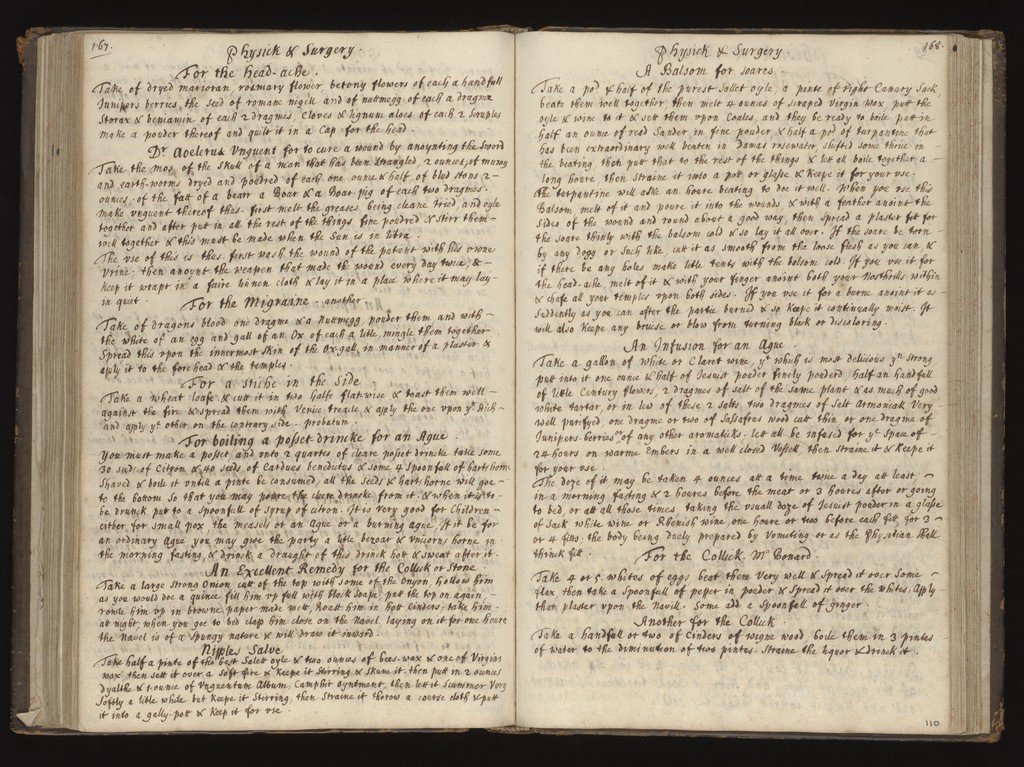 167.
Physick & Surgery.
For the head-ache.
Take of dryed marioran, rosmary flower, betony flowers of each a handfull
Junipers berries, the seed of romane nigill and of nuttmegg of each a dragma
Storax & beniamin of each 2 dragmes, Cloves & lignum aloes of each 2 Scruples
make a pouder thereof and quilt it in a Cap for the head.
Vnguent for to cure a wound by anoynting the Sword
Take the Mos of the Skull of a man that has been strangled, 2 ounces, of mumy
and earth-worms dryed and poudred of each one ounce & half, of blud stons 2-
ounces, of the fatt of a bearr a Boar & a Boar pig of each two dragmes.
make vnguent thereof thus. first melt the greases being cleane tried, and oyle
together and after putt in all the rest of the things fine poudred & Stirr them-
well together & this must be made when the Sun is in libra.
The vse of this is thus. first wash the wound of the patient with his owne
Vrine; then anoynt the weapen that made the wound every day twice, &-
keep it wrapt in a faire linnen cloth & lay it in a place where it may lay-
in quit.
For the Migraine. another
Take of dragons blood one dragme & a Nuttmegg pouder them and with-
the white of an egg and gall of an Ox of each a litle, mingle them together
Spread this vpon the innermost Skin of the Ox-gall, in manner of a plaster &
aply it to the forehead & the temples.
For a stiche in the Side
Take a wheat loafe & cutt it in two halfe flat-wise & toast them well-
against the fire & spread them with Venice treacle, & aply the one vpon ye. Stich-
and aply ye. other on the contrary side. probatum.
For boiling a posset drincke for an Ague.
You must make a posset, and vnto 2 quartes of cleare posset drincke take some
30 seeds of Citron & 40 Seeds of Carduus benedictus & some 4 Spoonfull of harts horne
Shaved & boile it vntill a pinte be consumed, all the Seeds & harts horne will goe-
to the bottom so that you may poure the cleere drincke from it. & when it is to-
be drunck put to a Spoonfull of Syrup of citron. It is very good for Children-
either for small pox the measels or an Ague or a burning ague, If it be for
an ordinary Ague you may give the party a litle bezoar & Vnicorns horne in
the morning fasting, & drinck a draught of this drinck hott & sweat after it.
An Excellent Remedy for the Collick or Stone
Take a large Strong Onion cutt of the top with some of the Onyon, hollow him
as you would doe a quince fill him vp full with black Soape, putt the top on again,
rowle him vp in browne paper made wett, Roast him in hott Cinders, take him-
at night, when you goe to bed clap him close on the Navel laying on it for one houre
the Navel is of a Spungy nature & will draw it inward.
Nipples Salve
Take half a pinte of the best Salett oyle & two ounces of bees-wax & one of Virgins
wax, then sett it over a Soft fire & keepe it Stirring & Skum it, then putt in 2 ounces
Dyalthe & 1. ounce of Vnguentum Album Camphir oyntment, then lett it Summer Very
Softly a litle while but keepe it Stirring, then Straine it thorow a course cloth & putt
it into a gally-pott & keep it for vse.
168.
Physick & Surgery
A Balsom for soares
Take a pod & half of the purest Sallet oyle, a pinte of right Canary Sack,
beate them well together, then melt 4 ounces of Scraped Virgin Wax putt the
oyle & wine to it & sett them vpon Coales, and they be ready to boile putt in-
half an ounce of read Sander in fine pouder & half a pod of turpantine that
has been extraordinary well beaten in Damas rosewater, shifted some thrice in-
the beating, then put that to the rest of the things & let all boile together a-
long houre, then Straine it into a pott or glasse & keepe it for your vse.
the terpentine will aske an houre beating to doe it well. When you vse this
Balsom melt of it and poure it into the wounds & with a feather anoint the
Sides of the wound and round about a good way, then Spread a plaster fitt for
the soare thinly with the balsom cold & so lay it all over. If the soare be torn-
by any dogg or such like, cutt it as smooth from the loose flesh as you can &
if there be any holes make litle tents with the balsom cold. If you vse it for
the head-ake, melt of it & with your finger anoint both your Nosthrills within
& chafe all your temples vpon both sides. If you vse it for a burne anoint it as-
suddenly as you can after the partie burned & so keepe it continually moist. It
will also keepe any bruise or blow from turning black or discoloring.
An Infusion for an Ague
Take a gallon of White or Claret wine, yt which is most delicious yn Strong
putt into it one ounce & half of Jesuist pouder finely pouderd, half an handfull
of little Century flowers, 2 dragmes of salt of the same plant & as much of good
white tartar, or in lew of these 2 Salts, two dragmes of Salt Armoniack Very-
well purifyed, one dragme or two of Sassafras wood cutt thin or one dragme of
Junipers-berries or of any other aromaticks. let all be infused for ye. Space of-
24 hours on warme Embers in a well closed Vessell, then straine it & keepe it
for your vse.
The doze of it may be taken 4 ounces att a time twice a day at least,-
in a morning fasting & 2 houres before the meat or 3 houres after or going
to bed, or att all those times, taking the vsuall doze of Jesuist pouder in a glasse
of Sack white wine or Rhenish wine, one houre or two before each fitt, for 3-
or 4 fitts; the body being duely prepared by Vomiting or as the Phisitian shall
thinck fitt.
For the Collick. Mr. Bonard.
Take 4 or 5 whites of eggs, beat them Very well & spread it over Some-
flax then take a Spoonfull of peper in pouder & Spread it over the whites. Apply
that plaster vpon the Navill. Some add a Spoonfull of ginger.
Another for the Collick
Take a handfull or two of Cinders of wigne wood, boile them in 3 pintes-
of water to the diminution of two pintes. Straine the liquor & drinck it.
110